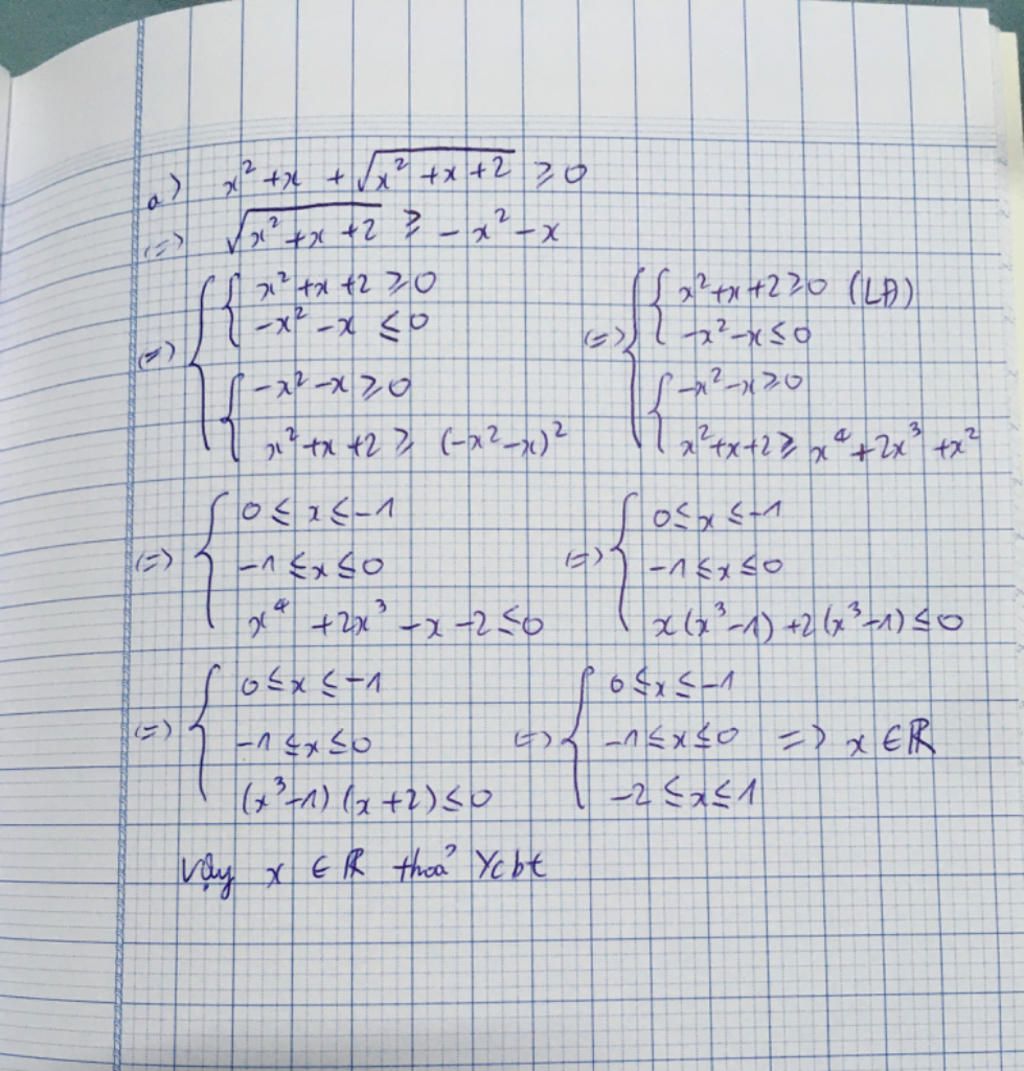 a) x² + x + √(x² + x + 2) ≥ 0
(=) √(x² + x + 2) ≥ - x² - x
(=) { { x² + x + 2 ≥ 0
-x² - x ≤ 0
{ -x² - x ≥ 0
x² + x + 2 ≥ (-x² - x)²
(=) { { x² + x + 2 ≥ 0 (LĐ)
-x² - x ≤ 0
{ -x² - x ≥ 0
x² + x + 2 ≥ x⁴ + 2x³ + x²
(=) { 0 ≤ x ≤ -1
-1 ≤ x ≤ 0
x⁴ + 2x³ - x - 2 ≤ 0
(=) { 0 ≤ x ≤ -1
-1 ≤ x ≤ 0
x(x³ - 1) + 2(x³ - 1) ≤ 0
(=) { 0 ≤ x ≤ -1
-1 ≤ x ≤ 0
(x³ - 1)(x + 2) ≤ 0
(=) { 0 ≤ x ≤ -1
-1 ≤ x ≤ 0 => x ∈ ℝ
-2 ≤ x ≤ 1
Vậy x ∈ ℝ thoả Ycbt